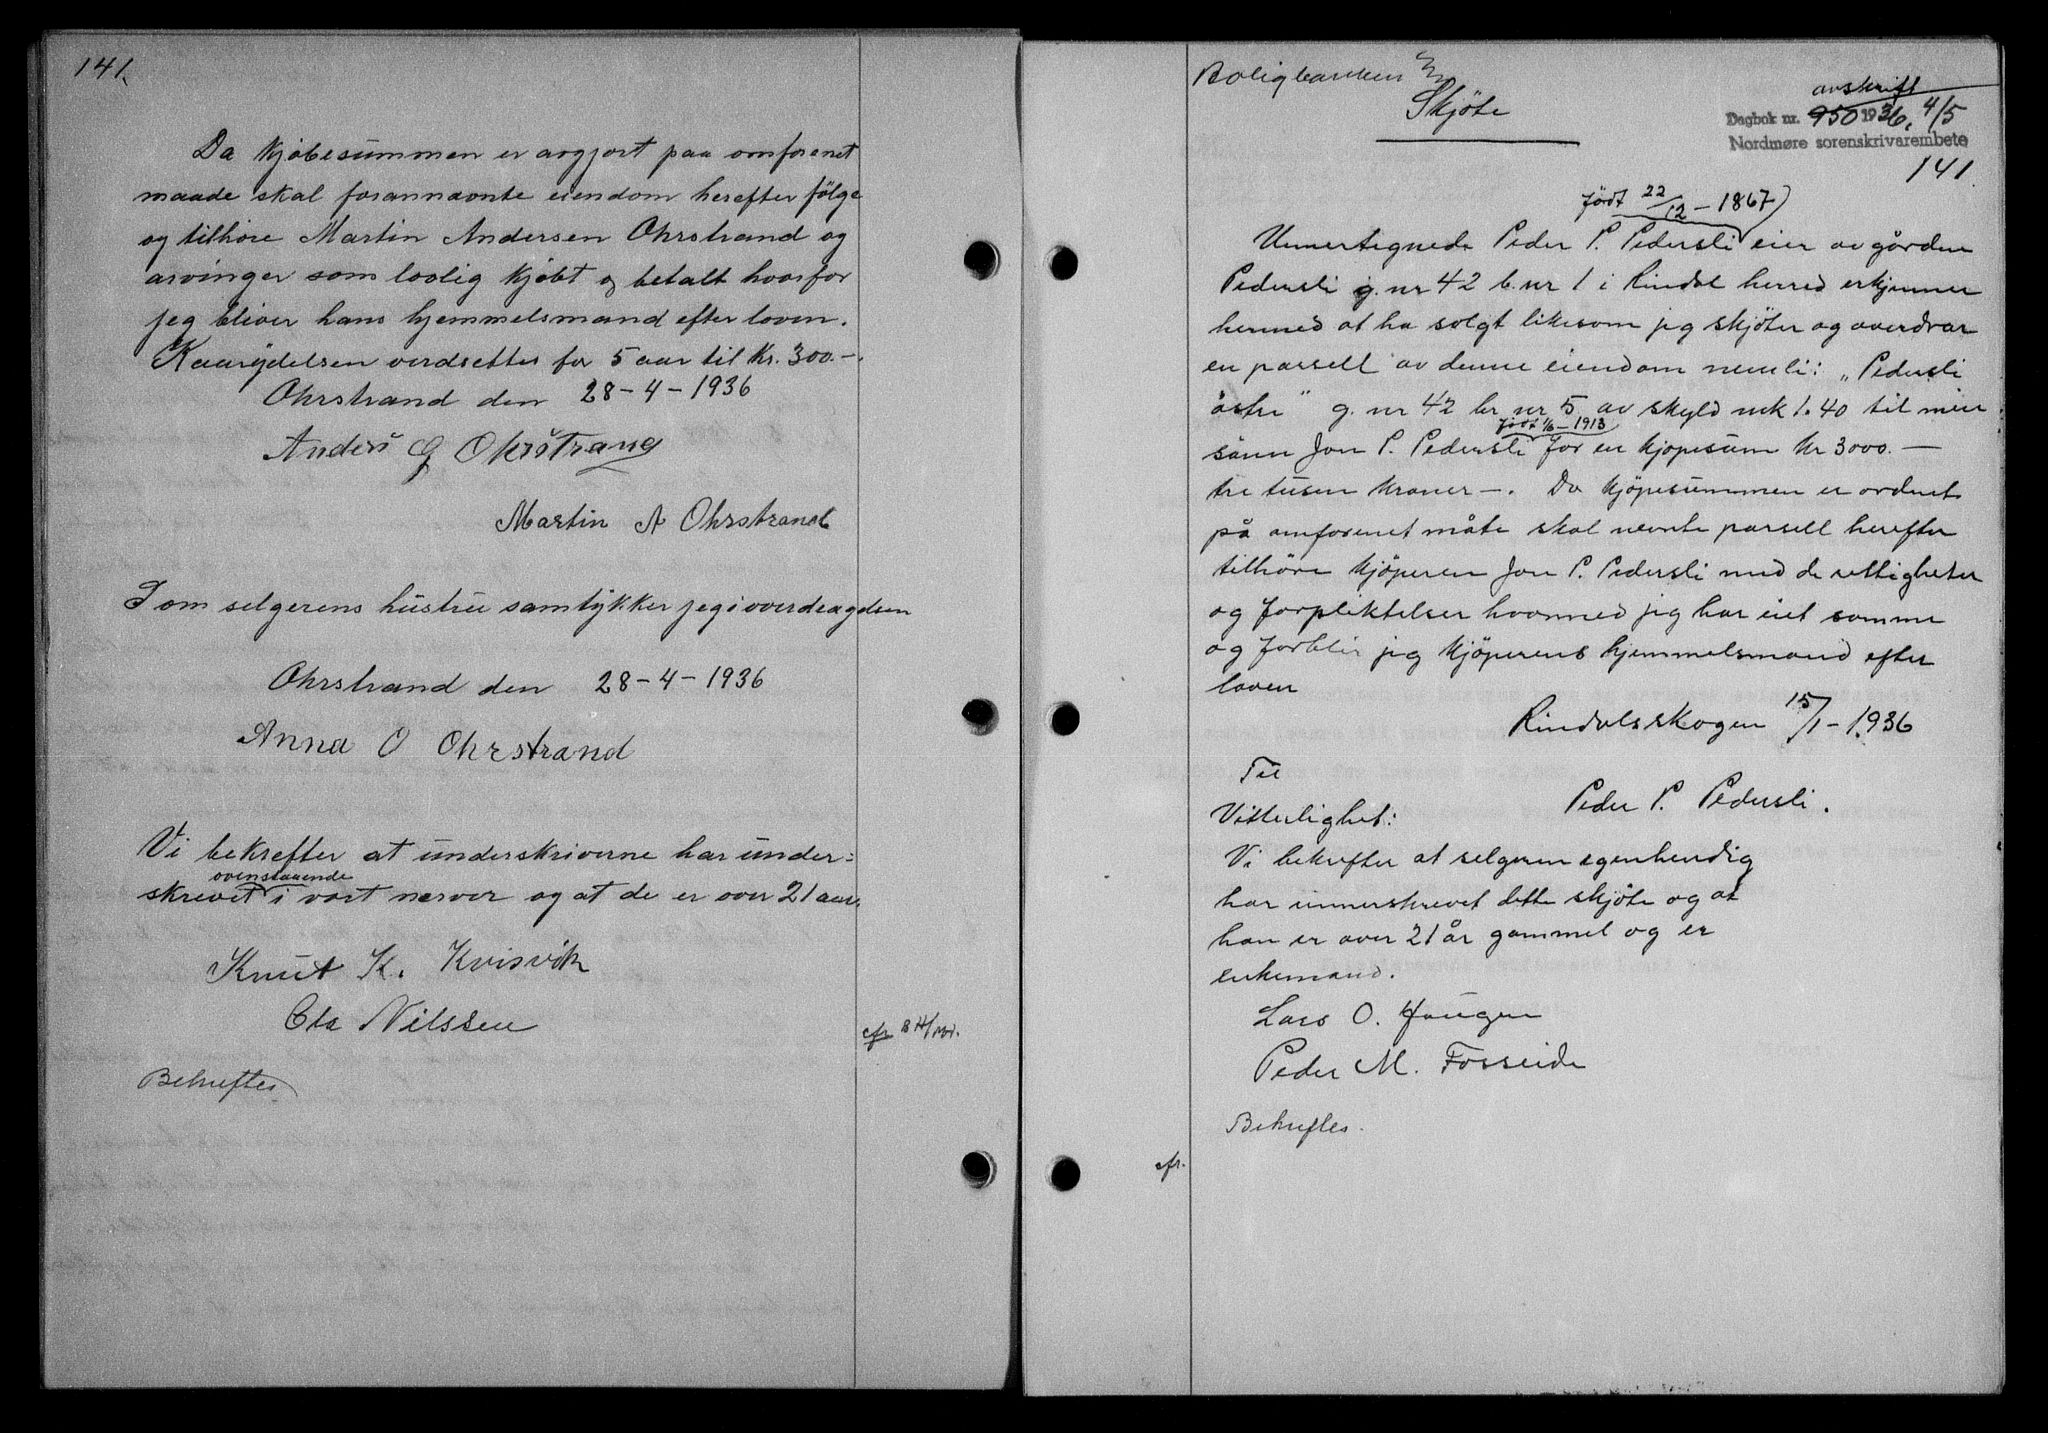 141.
Da kjøbesummen er avgjort paa omforenet
maade skal forannævnte eiendom herefter følge
og tilhøre Martin Andersen Ohrstrand og
arvinger som lovlig kjøbt og betalt hvorfor
jeg bliver hans hjemmelsmand efter loven.
Kaarytdelsen verdsettes for 5 aar til Kr. 300.-
Ohrstrand den 28-4-1936
Anders G Ohrstrang
Martin A Ohrstrand
Som selgerens hustru samtykker jeg i overdragelsen
Ohrstrand den 28-4-1936
Anna O Ohrstrand
Vi bekrefter at underskriverne har under-
ovenstaaende
skrevet i vort nærver og at de er over 21 aar.
Knut K. Kvisvik
Ola Nilssen
cfr
Bekreftes
Boligbanken
Skjöte
avskrift
Dagbok nr. 950 1936, 4/5
Nordmøre sorenskrivarembete
141.
født 22/12 - 1867
Unnertegnede Peder P. Pedersli eier av gården
Pedersli g. nr 42 b. nr 1 i Rindal herred erkjenner
hermed at ha solgt likesom jeg skjöter og averdrar
en parsell av denne eiendom nemli: "Pedersli
östre" g. nr 42 br. nr 5 av skyld mk 1.40 til min
født 1/6 - 1913
sönn Jon P. Pedersli for en kjöpesum Kr 3000.-
tre tusen kroner -. Da kjöpesummen er ordnet
på omforenet måte skal nevnte parsell herefter
tilhöre kjöperen Jon P. Pedersli med de rettigheter
og forpliktelser hvormed jeg har eiet samme
og forblir jeg kjöperens hjemmelsmand efter
loven
Rindalsskogen 15/1 - 1936
Til
Peder P. Pedersli.
Vitterlighet:
Vi bekrefter at selgeren egenhendig
har unnerskrevet dette skjöte og at
han er over 21 år gammel og er
enkemand.
Lars O. Haugen
Peder M. Fosseide
Bekreftes.
cfr.